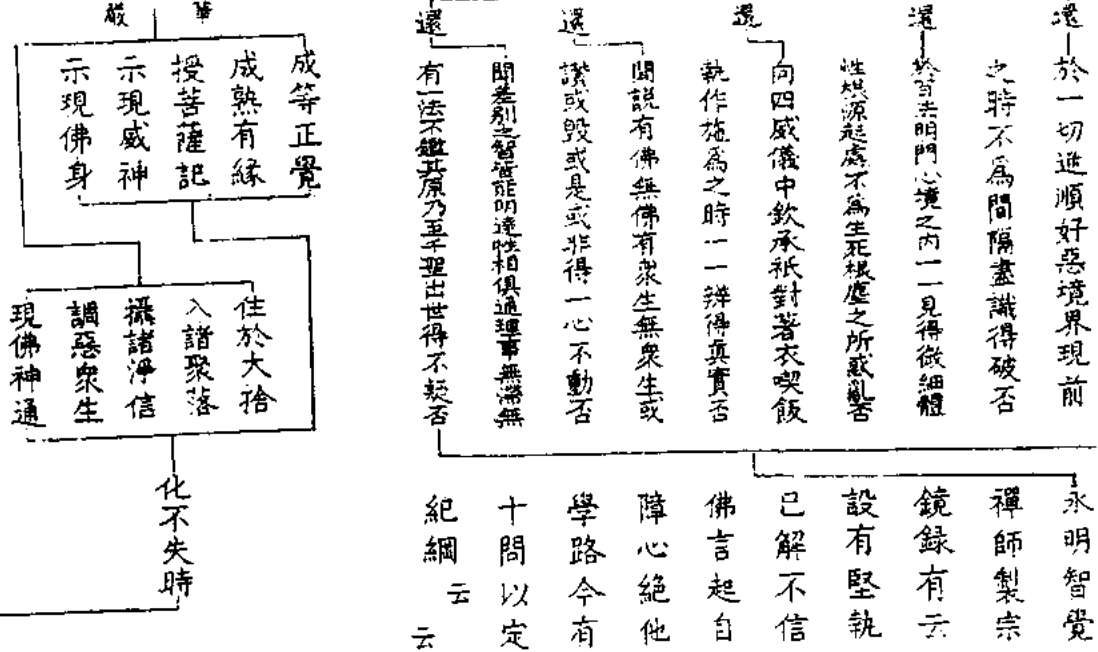 還
於一切進順好惡境界現前
之時不為間隔盡識得破否
還
於百法明門心境之內一一見得微細體
性根源起處不為生死根塵之所惑亂否
還
向四威儀中欽承祇對著衣喫飯
執作施為之時一一辨得真實否
還
聞說有佛無佛有衆生無衆生或
讚或毀或是或非得一心不動否
還
聞差別之智皆能明達性相俱通理事無滯無
有一法不鑑其原乃至千聖出世得不疑否
永明智覺
禪師製宗
鏡錄有云
設有堅執
己解不信
佛言起自
障心絕他
學路今有
十問以定
紀綱云
云
華
嚴
成等正覺
成熟有緣
授菩薩記
示現威神
示現佛身
住於大捨
入諸聚落
攝諸淨信
調惡衆生
現佛神通
化不失時